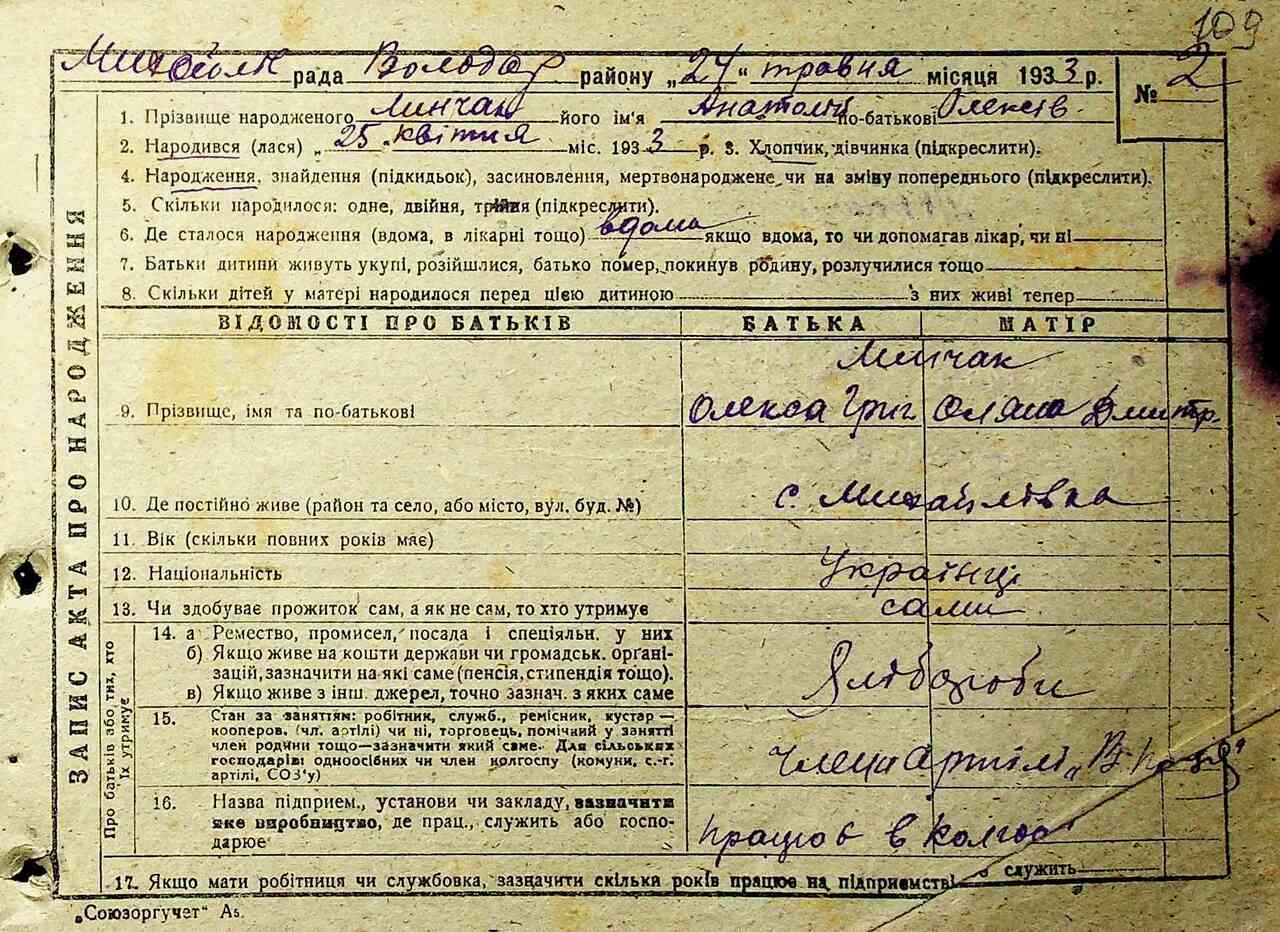 109
Михайлк рада Володар району „24“ травня місяця 1933 р. № 2
1. Прізвище народженого Минчак його ім'я Анатолій по-батькові Олексів
2. Народився (лася) „25 квітня міс. 1933 р. 3. Хлопчик, дівчинка (підкреслити).
4. Народження, знайдення (підкидьок), засиновлення, мертвонароджене, чи на зміну попереднього (підкреслити).
5. Скільки народилося: одне, двійня, трійня (підкреслити).
6. Де сталося народження (вдома, в лікарні тощо) вдома якщо вдома, то чи допомагав лікар, чи ні
7. Батьки дитини живуть укупі, розійшлися, батько помер, покинув родину, розлучилися тощо
8. Скільки дітей у матері народилося перед цією дитиною з них живі тепер
ВІДОМОСТІ ПРО БАТЬКІВ БАТЬКА МАТІР
Минчак
9. Прізвище, імя та по-батькові Олекса Григ Оляна Дмитр.
10. Де постійно живе (район та село, або місто, вул. буд. №) с. Михайлівка
11. Вік (скільки повних років має)
12. Національність Українці
13. Чи здобуває прожиток сам, а як не сам, то хто утримує сами
14. а Ремество, промисел, посада і спеціяльн. у них
б) Якщо живе на кошти держави чи громадськ. орґані-
зацій, зазначити на які саме (пенсія, стипендія тощо).
в) Якщо живе з інш. джерел, точно зазнач. з яких саме
Хлібороби
15. Стан за заняттям: робітник, служб., ремісник, кустар —
кооперов. (чл. артілі) чи ні, торговець, помічний у занятті
член родини тощо—зазначити який саме. Для сільських
господарів: одноосібних чи член колгоспу (комуни, с.-г.
артілі, СОЗ'у)
Члени артілі
16. Назва підприєм., установи чи закладу, зазначити
яке виробництво, де прац., служить або госпо-
дарює
працює в колгос
17. Якщо мати робітниця чи службовка, зазначити скільки років працює на підприємстві служить
ЗАПИС АКТА ПРО НАРОДЖЕННЯ
Про батьків або тих, хто
їх утримує
„Союзоргучет“ А5.